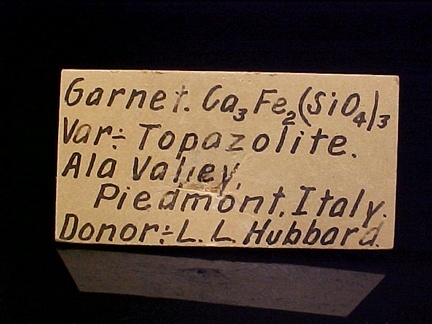 Garnet. Ca₃Fe₂(SiO₄)₃
Var:- Topazolite.
Ala Valley,
Piedmont, Italy.
Donor:- L. L. Hubbard.